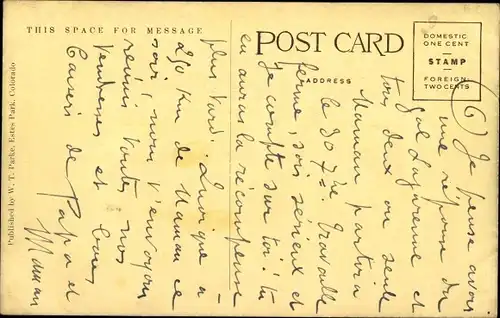 THIS SPACE FOR MESSAGE
POST CARD
ADDRESS
DOMESTIC
ONE CENT
STAMP
FOREIGN
TWO CENTS
Published by W. T. Parke, Estes Park, Colorado
(6) Je pense avoir
une réponse du
Gal Laguenne et
tous deux ou seule
Maman partira
le 30 7bre Travaille
ferme, sois sérieux et
Je compte sur toi! tu
en auras la récompense
plus tard. Quoique à
250 Km de Maman ce
soir, nous t'envoyons
réunis toutes nos
tendresses et bons
baisers de Papa et
Maman